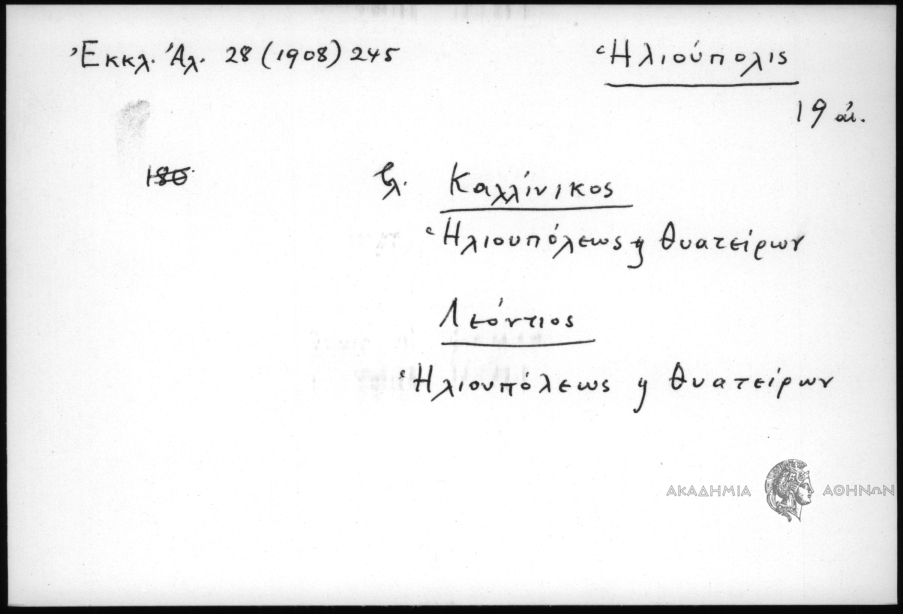 Ἐκκλ. Ἀλ. 28 (1908) 245
Ἡλιούπολις
19 αἰ.
βλ. Καλλίνικος
Ἡλιουπόλεως ϗ Θυατείρων
Λεόντιος
Ἡλιουπόλεως ϗ Θυατείρων
ΑΚΑΔΗΜΙΑ ΑΘΗΝΩΝ